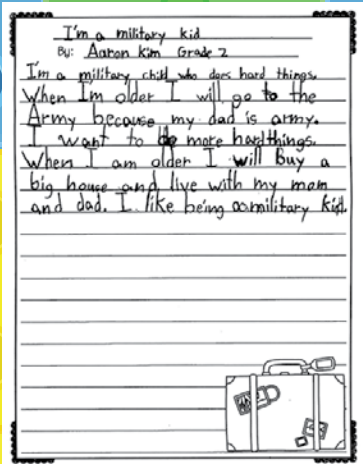 I'm a military kid
By: Aaron Kim Grade 2
I'm a military child who does hard things.
When I'm older I will go to the
Army because my dad is army.
I want to do more hard things.
When I am older I will Buy a
big house and live with my mom
and dad. I like being a military kid.